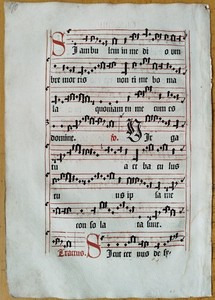 Si ambu lem in me di o um
bre mor tis non ti me bo ma
la quoniam tu me cum es
domine. V. Vir ga
tu a et ba cu lus
tu us ip sa me
con so la ta sunt.
Tractus. Sicut cer vus de si